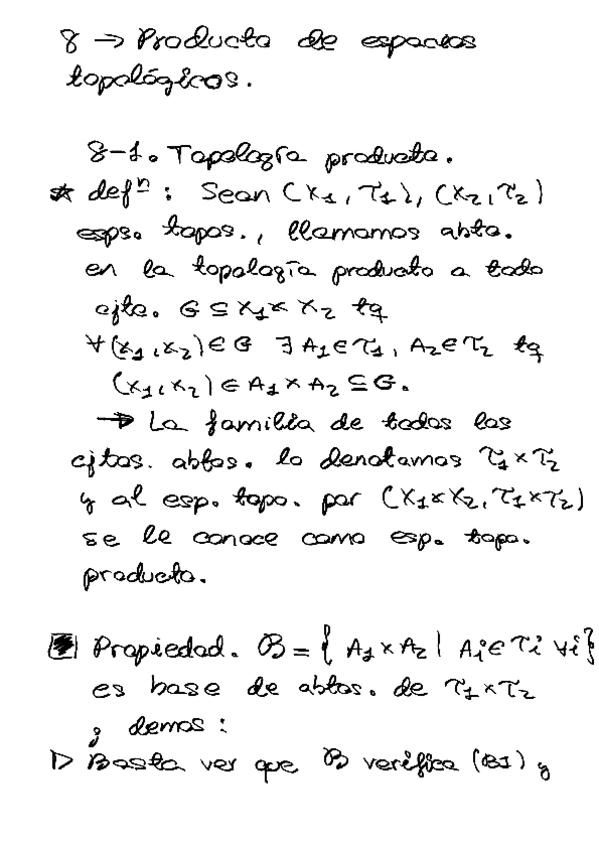 8 → Producto de espacios
topológicos.
8-1. Topología producto.
* defⁿ: Sean (X₁, τ₁), (X₂, τ₂)
esps. topos., llamamos abto.
en la topología producto a todo
cjto. G ⊆ X₁ × X₂ tq
∀(x₁, x₂) ∈ G ∃ A₁ ∈ τ₁, A₂ ∈ τ₂ tq
(x₁, x₂) ∈ A₁ × A₂ ⊆ G.
→ La familia de todos los
cjtos. abtos. lo denotamos τ₁ × τ₂
y al esp. topo. por (X₁ × X₂, τ₁ × τ₂)
se le conoce como esp. topo.
producto.
Propiedad. B = { A₁ × A₂ | Aᵢ ∈ τᵢ ∀i }
es base de abtos. de τ₁ × τ₂
; demos:
▷ Basta ver que B verifica (B1) y